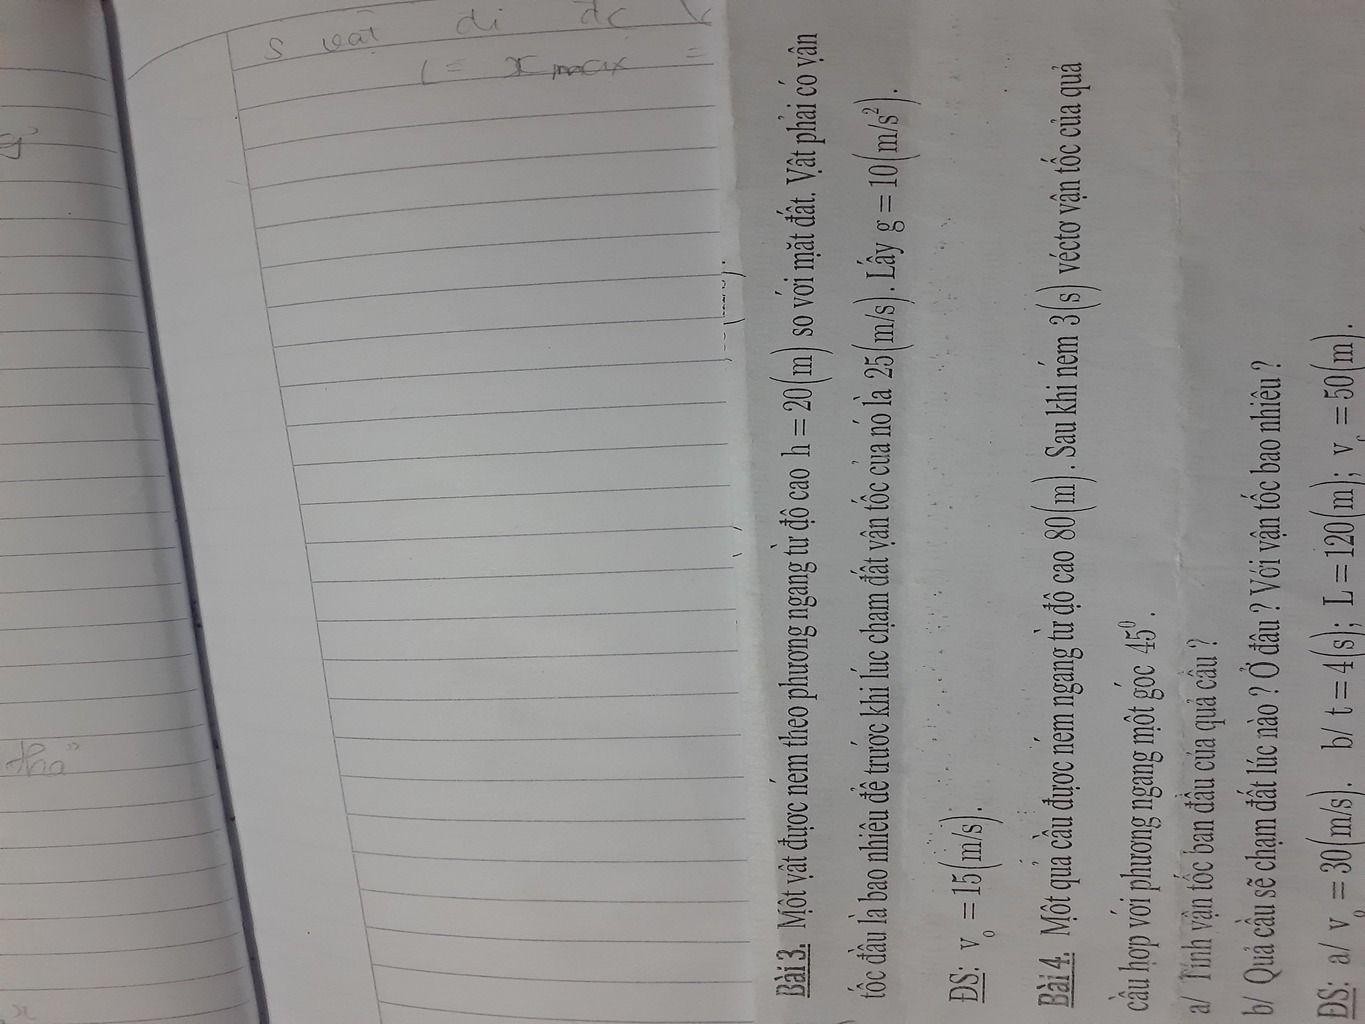 s vật đi đc
L = x max =
thả
x
Bài 3. Một vật được ném theo phương ngang từ độ cao h = 20(m) so với mặt đất. Vật phải có vận
tốc đầu là bao nhiêu để trước khi lúc chạm đất vận tốc của nó là 25(m/s). Lấy g = 10(m/s²).
ĐS: v₀ = 15(m/s).
Bài 4. Một quả cầu được ném ngang từ độ cao 80(m). Sau khi ném 3(s) véctơ vận tốc của quả
cầu hợp với phương ngang một góc 45⁰.
a/ Tính vận tốc ban đầu của quả cầu ?
b/ Quả cầu sẽ chạm đất lúc nào ? Ở đâu ? Với vận tốc bao nhiêu ?
ĐS: a/ v₀ = 30(m/s). b/ t = 4(s); L = 120(m); v = 50(m).